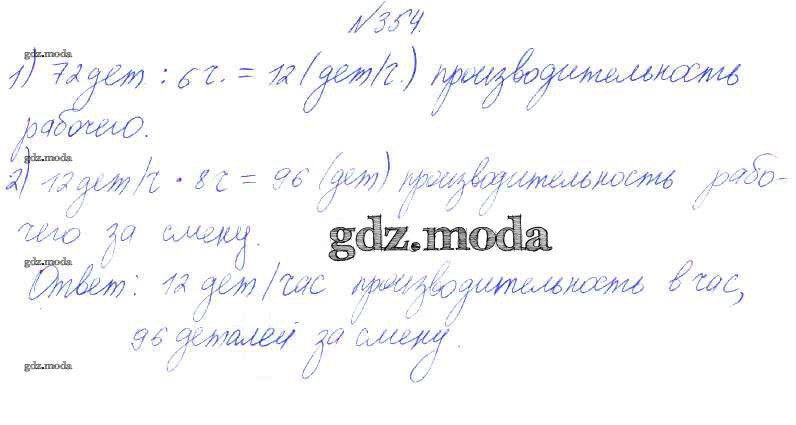 №354.
gdz.moda
1) 72 дет. : 6 ч. = 12 (дет/ч.) производительность
рабочего.
gdz.moda
2) 12 дет/ч • 8 ч = 96 (дет) производительность рабо-
чего за смену.
gdz.moda
gdz.moda
Ответ: 12 дет/час производительность в час,
96 деталей за смену.
gdz.moda